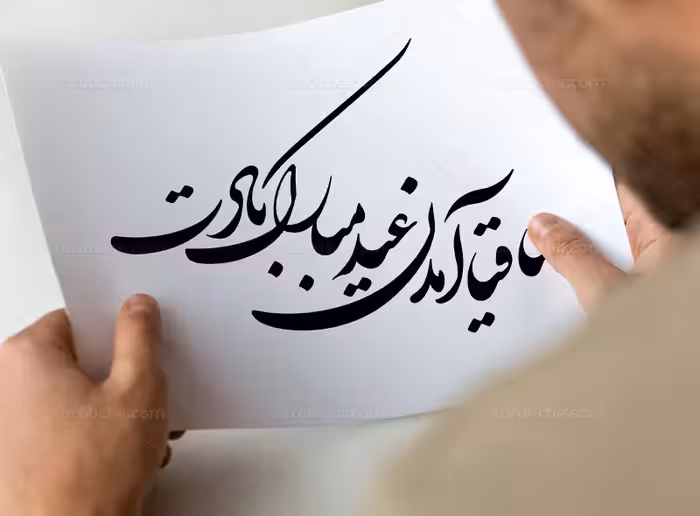 ساقیا آمدن عید مبارک بادت